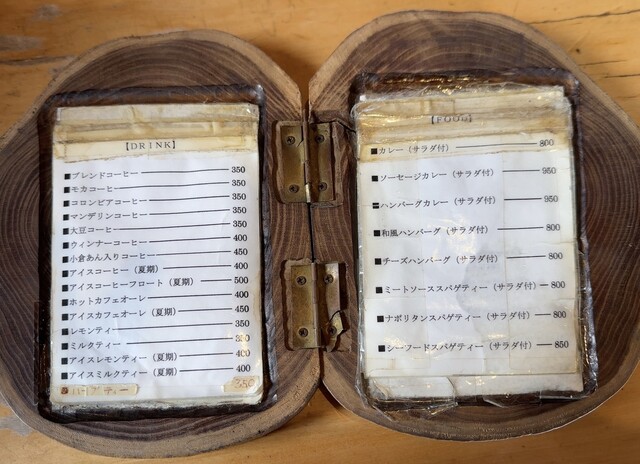 【DRINK】
■ブレンドコーヒー 350
■モカコーヒー 350
■コロンビアコーヒー 350
■マンデリンコーヒー 350
■大豆コーヒー 350
■ウィンナーコーヒー 400
■小倉あん入りコーヒー 450
■アイスコーヒー（夏期） 400
■アイスコーヒーフロート（夏期） 500
■ホットカフェオーレ 400
■アイスカフェオーレ（夏期） 450
■レモンティー 350
■ミルクティー 350
■アイスレモンティー（夏期） 400
■アイスミルクティー（夏期） 400
ハーブティー 350
【FOOD】
■カレー（サラダ付） 800
■ソーセージカレー（サラダ付） 950
■ハンバーグカレー（サラダ付） 950
■和風ハンバーグ（サラダ付） 800
■チーズハンバーグ（サラダ付） 800
■ミートソーススパゲティー（サラダ付） 800
■ナポリタンスパゲティー（サラダ付） 800
■シーフードスパゲティー（サラダ付） 850